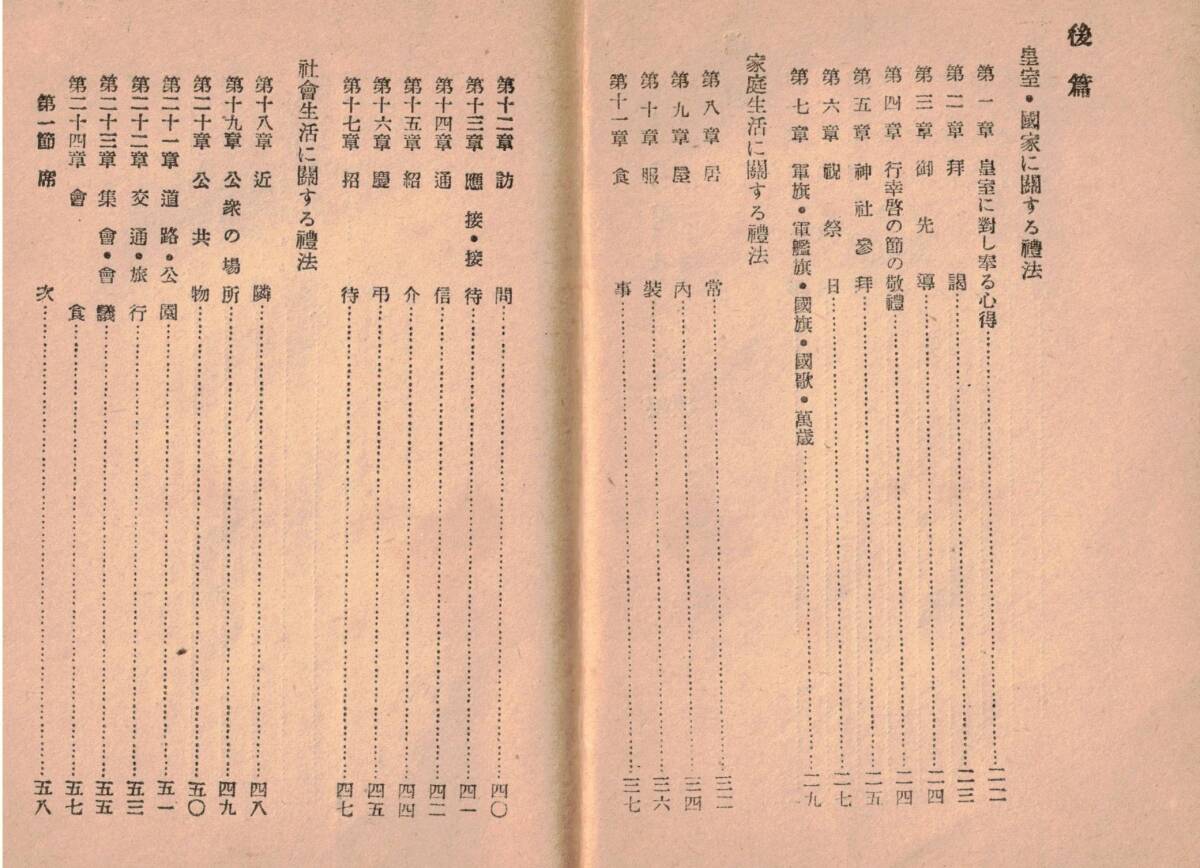 後篇
皇室・國家に關する禮法
第一章 皇室に對し奉る心得 二二
第二章 拜謁 二三
第三章 御先導 二四
第四章 行幸啓の節の敬禮 二四
第五章 神社參拜 二五
第六章 祝祭日 二七
第七章 軍旗・軍艦旗・國旗・國歌・萬歲 二九
家庭生活に關する禮法
第八章 居常 三二
第九章 屋內 三四
第十章 服裝 三六
第十一章 食事 三七
第十二章 訪問 四〇
第十三章 應接・接待 四一
第十四章 通信 四二
第十五章 紹介 四四
第十六章 慶弔 四五
第十七章 招待 四七
社會生活に關する禮法
第十八章 近隣 四八
第十九章 公衆の場所 四九
第二十章 公共物 五〇
第二十一章 道路・公園 五一
第二十二章 交通・旅行 五三
第二十三章 集會・會議 五五
第二十四章 會食 五七
第一節 席次 五八